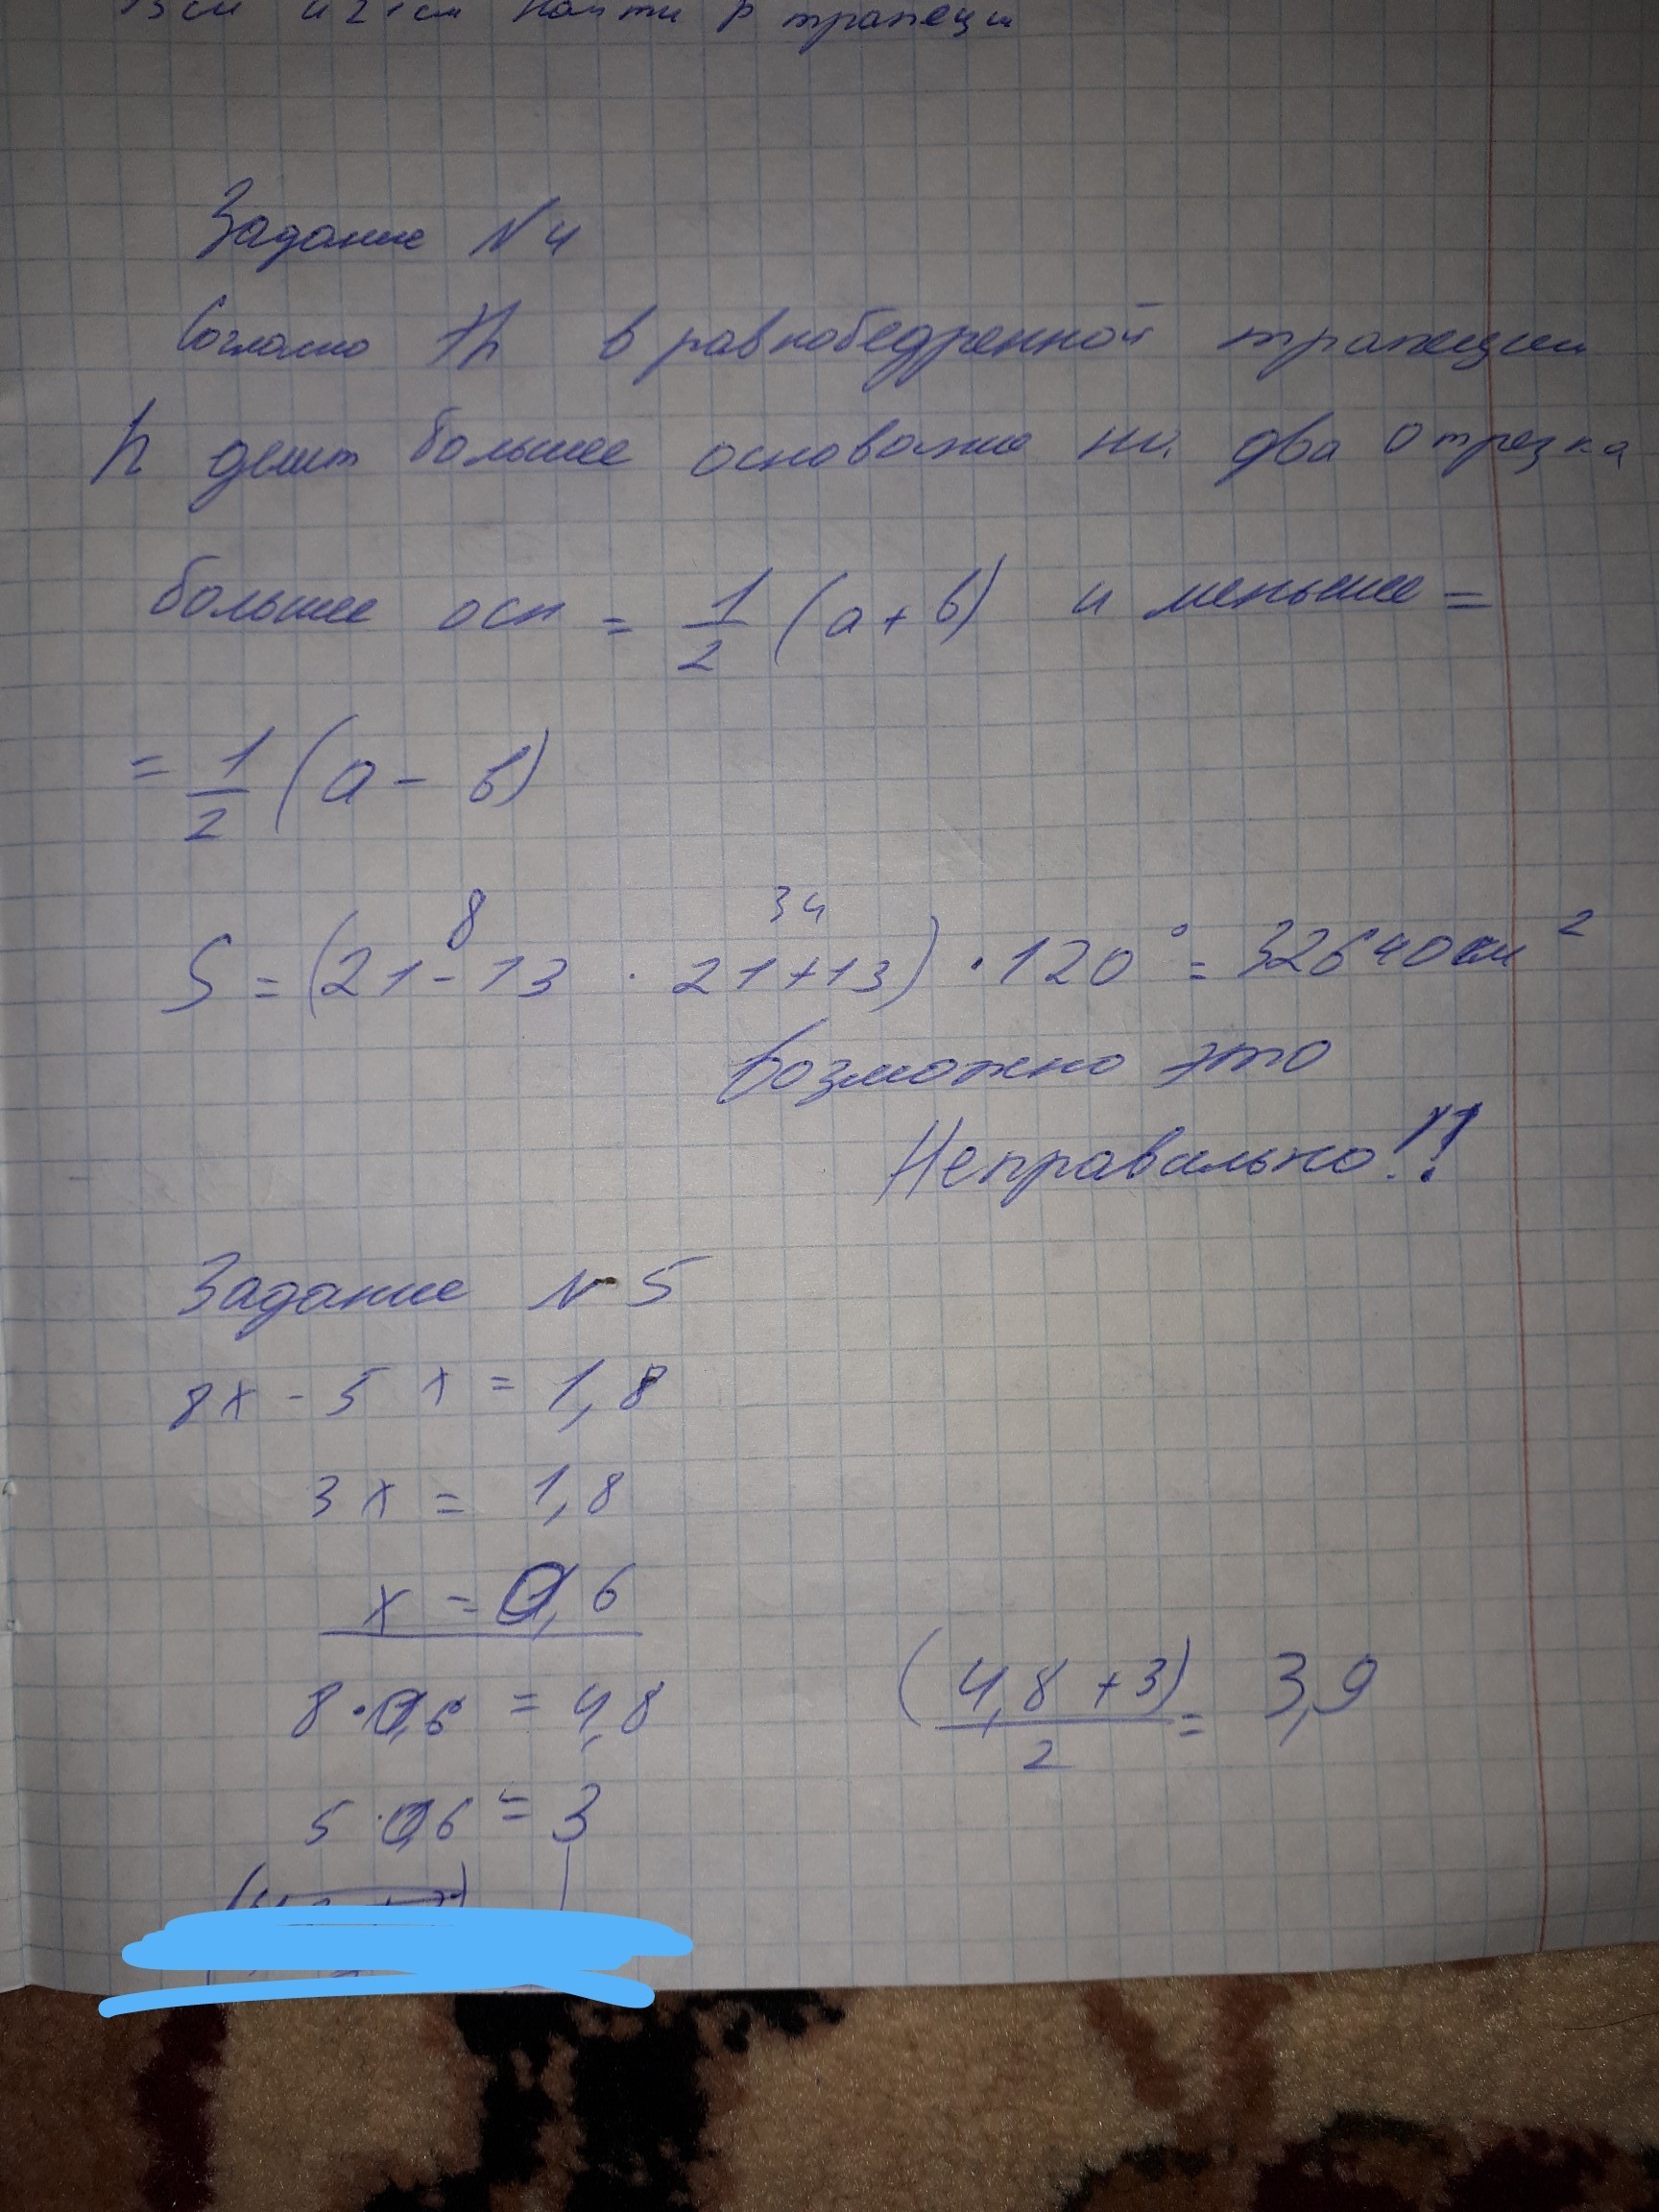 13 см и 21 см найти P трапеции
Задание №4
Согласно Th в равнобедренной трапеции
h делит большее основание на два отрезка
большее осн = 1/2 (a + b) и меньшее =
= 1/2 (a - b)
8 34
S = (21 - 13 · 21 + 13) · 120° = 32640 см²
Возможно это
Неправильно!!
Задание № 5
8x - 5x = 1,8
3x = 1,8
x = 0,6
8 · 0,6 = 4,8
(4,8 + 3)/2 = 3,9
5 · 0,6 = 3